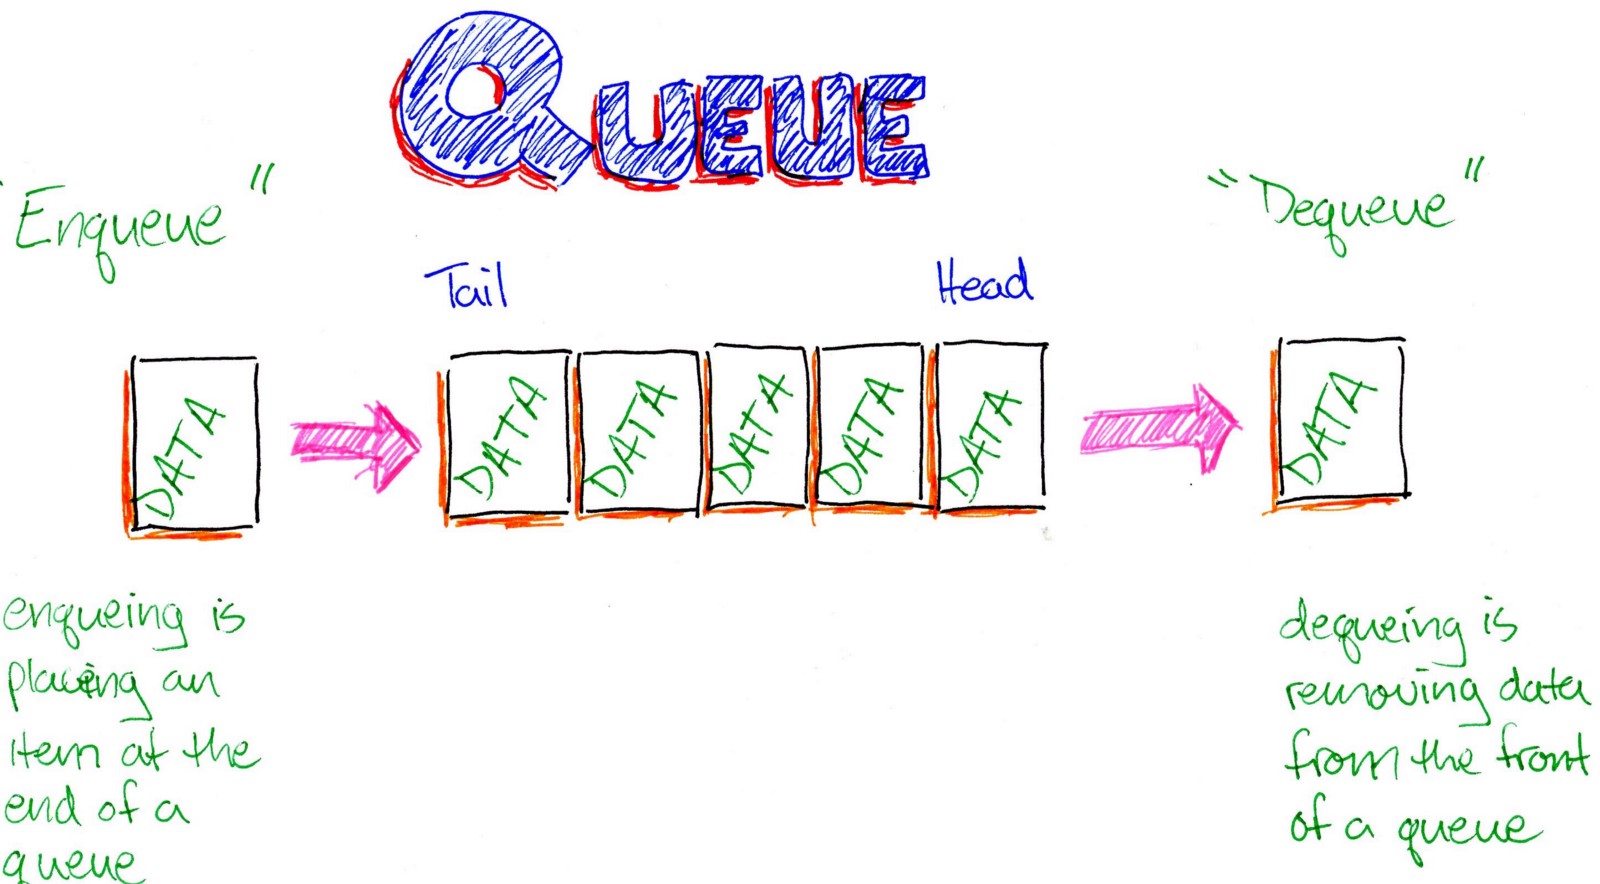 QUEUE
"Enqueue"
"Dequeue"
Tail
Head
DATA
DATA
DATA
DATA
DATA
DATA
DATA
enqueing is
placing an
item at the
end of a
queue
dequeing is
removing data
from the front
of a queue